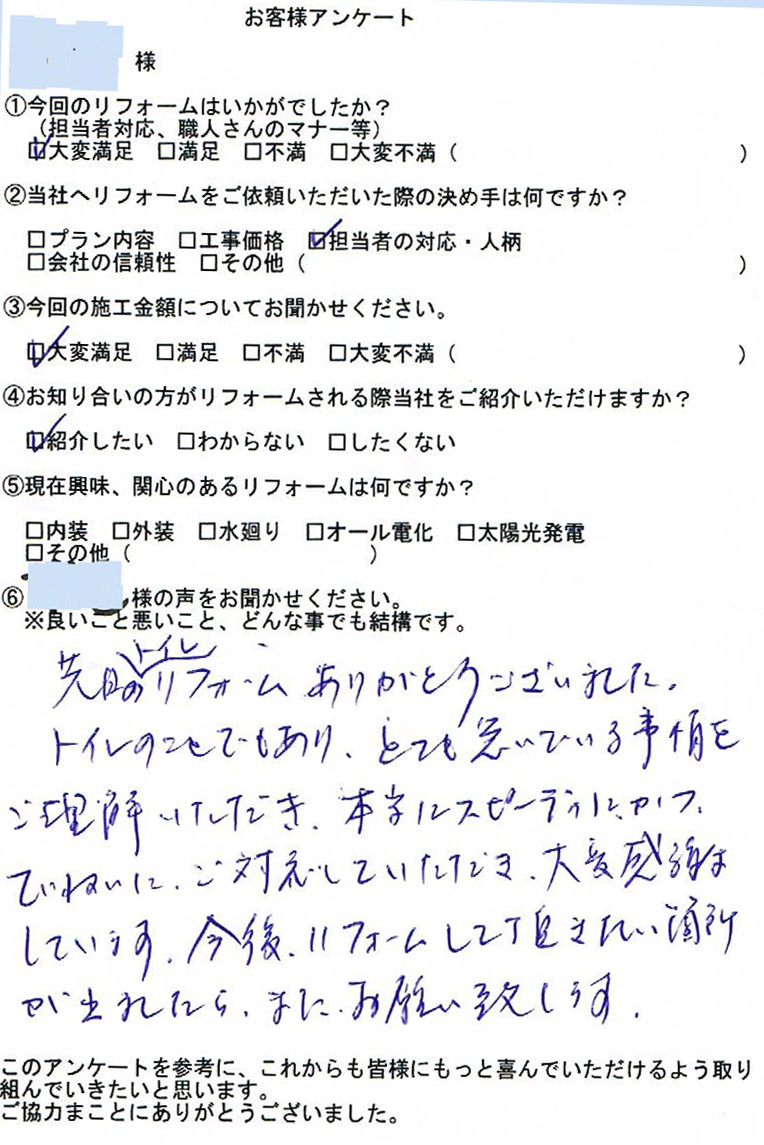 お客様アンケート
様
①今回のリフォームはいかがでしたか？
（担当者対応、職人さんのマナー等）
☑大変満足 □満足 □不満 □大変不満（ ）
②当社へリフォームをご依頼いただいた際の決め手は何ですか？
□プラン内容 □工事価格 ☑担当者の対応・人柄
□会社の信頼性 □その他（ ）
③今回の施工金額についてお聞かせください。
☑大変満足 □満足 □不満 □大変不満（ ）
④お知り合いの方がリフォームされる際当社をご紹介いただけますか？
☑紹介したい □わからない □したくない
⑤現在興味、関心のあるリフォームは何ですか？
□内装 □外装 □水廻り □オール電化 □太陽光発電
□その他（ ）
⑥ 様の声をお聞かせください。
※良いこと悪いこと、どんな事でも結構です。
先日のトイレリフォームありがとうございました。
トイレのことでもあり、とても急いでいる事情を
ご理解いただき、本当にスピーディに、かつ、
ていねいに、ご対応していただき、大変感謝
しています。今後、リフォームして頂きたい箇所
が出れたら、また、お願い致します。
このアンケートを参考に、これからも皆様にもっと喜んでいただけるよう取り
組んでいきたいと思います。
ご協力まことにありがとうございました。